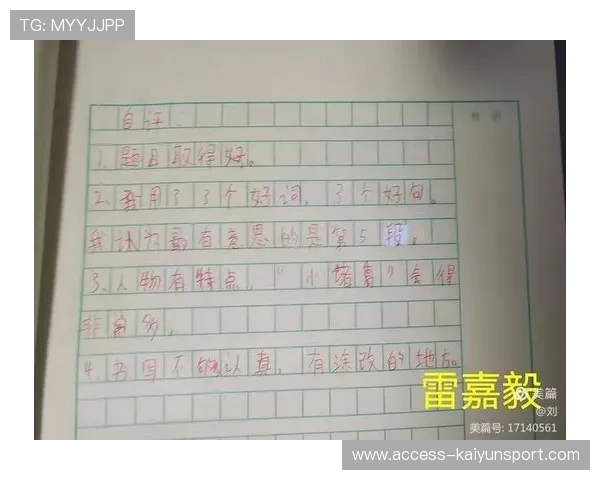 TG: MYYJJPP
自评.
1. 题目取得好。
2. 用了3个好词, 3个好句。
我认为最有意思的是第5段。
3、人物有特点, "小诸葛"
非常多,
4. 书写不够认真, 有涂改的地方。
雷嘉毅
美篇
@刘
美篇号: 17140561
www.access-kaiyunsport.com